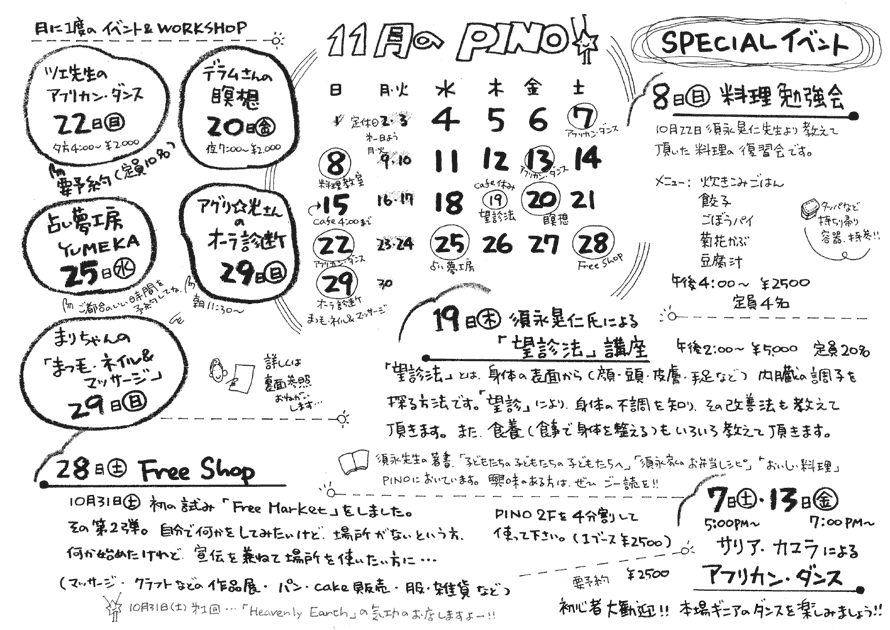 月に1度の イベント& WORKSHOP
11月の PINO!
SPECIAL イベント
ツエ先生の
アフリカン・ダンス
22日(日)
夕方4:00〜 ¥2,000
要予約(定員10名)
デラムさんの
瞑想
20日(金)
夜7:00〜 ¥2,000
占い夢工房
YUMEKA
25日(水)
ご都合のいい時間を
予約してね
アグリ☆光さん
の
オーラ診断
29日(日)
朝11:30〜
まりちゃんの
「まつ毛・ネイル&
マッサージ」
29日(日)
詳しくは
裏面参照
おねがい
します…
日 月・火 水 木 金 土
定休日 2・3 4 5 6 7
アフリカン・ダンス
8 9・10 11 12 13 14
料理教室 cafe休み アフリカン・ダンス
15 16・17 18 19 20 21
cafe 4:00まで 望診法 瞑想
22 23・24 25 26 27 28
アフリカン・ダンス 占い夢工房 Free Shop
29 30
オーラ診断
まつ毛・ネイル&マッサージ
8日(日) 料理勉強会
10月22日須永晃仁先生より教えて
頂いた料理の復習会です。
メニュー: 炊きこみごはん
餃子
ごぼうパイ
菊花かぶ
豆腐汁
タッパなど
持ち帰り
容器、持参!!
午後4:00〜 ¥2500
定員4名
19日(木) 須永晃仁氏による
「望診法」講座
午後2:00〜 ¥5,000 定員20名
「望診法」とは、身体の表面から(顔・頭・皮膚・手足など)内臓の調子を
探る方法です。「望診」により、身体の不調を知り、その改善法も教えて
頂きます。また、食養(食事で身体を整える)もいろいろ教えて頂きます。
須永先生の著書、「子どもたちの子どもたちの子どもたちへ」「須永家のお弁当レシピ」「おいしい料理」
PINOにおいています。興味のある方は、ぜひ ご一読を!!
28日(土) Free Shop
10月31日(土) 初の試み「Free Market」をしました。
その第2弾。自分で何かをしてみたいけど、場所がないという方、
何か始めたけれど、宣伝を兼ねて場所を使いたい方に…
(マッサージ・クラフトなどの作品展・パン・cake販売・服・雑貨 など)
10月31日(土)第1回…「Heavenly Earth」の気功のお店しますよー!!
PINO 2Fを4分割して
使って下さい。(1ブース ¥2500)
7日(土)・13日(金)
5:00PM〜 7:00PM〜
サリア・カマラによる
アフリカン・ダンス
要予約 ¥2500
初心者大歓迎!! 本場ギニアのダンスを楽しみましょう!!